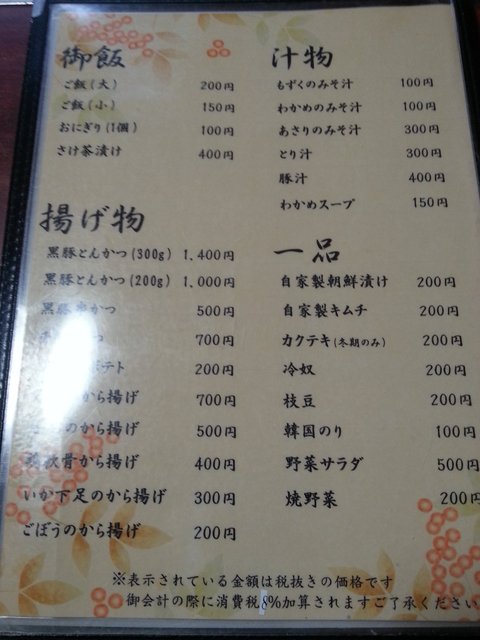 御飯
ご飯(大) 200円
ご飯(小) 150円
おにぎり(1個) 100円
さけ茶漬け 400円
揚げ物
黒豚とんかつ(300g) 1,400円
黒豚とんかつ(200g) 1,000円
黒豚 かつ 500円
700円
テト 200円
から揚げ 700円
のから揚げ 500円
軟骨から揚げ 400円
いか下足のから揚げ 300円
ごぼうのから揚げ 200円
汁物
もずくのみそ汁 100円
わかめのみそ汁 100円
あさりのみそ汁 300円
とり汁 300円
豚汁 400円
わかめスープ 150円
一品
自家製朝鮮漬け 200円
自家製キムチ 200円
カクテキ(冬期のみ) 200円
冷奴 200円
枝豆 200円
韓国のり 100円
野菜サラダ 500円
焼野菜 200円
※表示されている金額は税抜きの価格です
御会計の際に消費税8%加算されますご了承ください